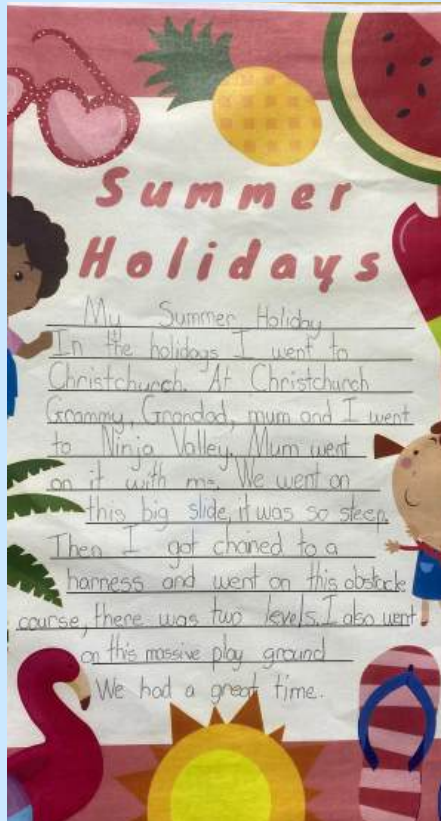 Summer
Holidays
My Summer Holiday
In the holidays I went to
Christchurch. At Christchurch
Grammy, Grandad, mum and I went
to Ninja Valley. Mum went
on it with me. We went on
this big slide, it was so steep.
Then I got chained to a
harness and went on this obstacle
course, there was two levels. I also went
on this massive play ground
We had a great time.